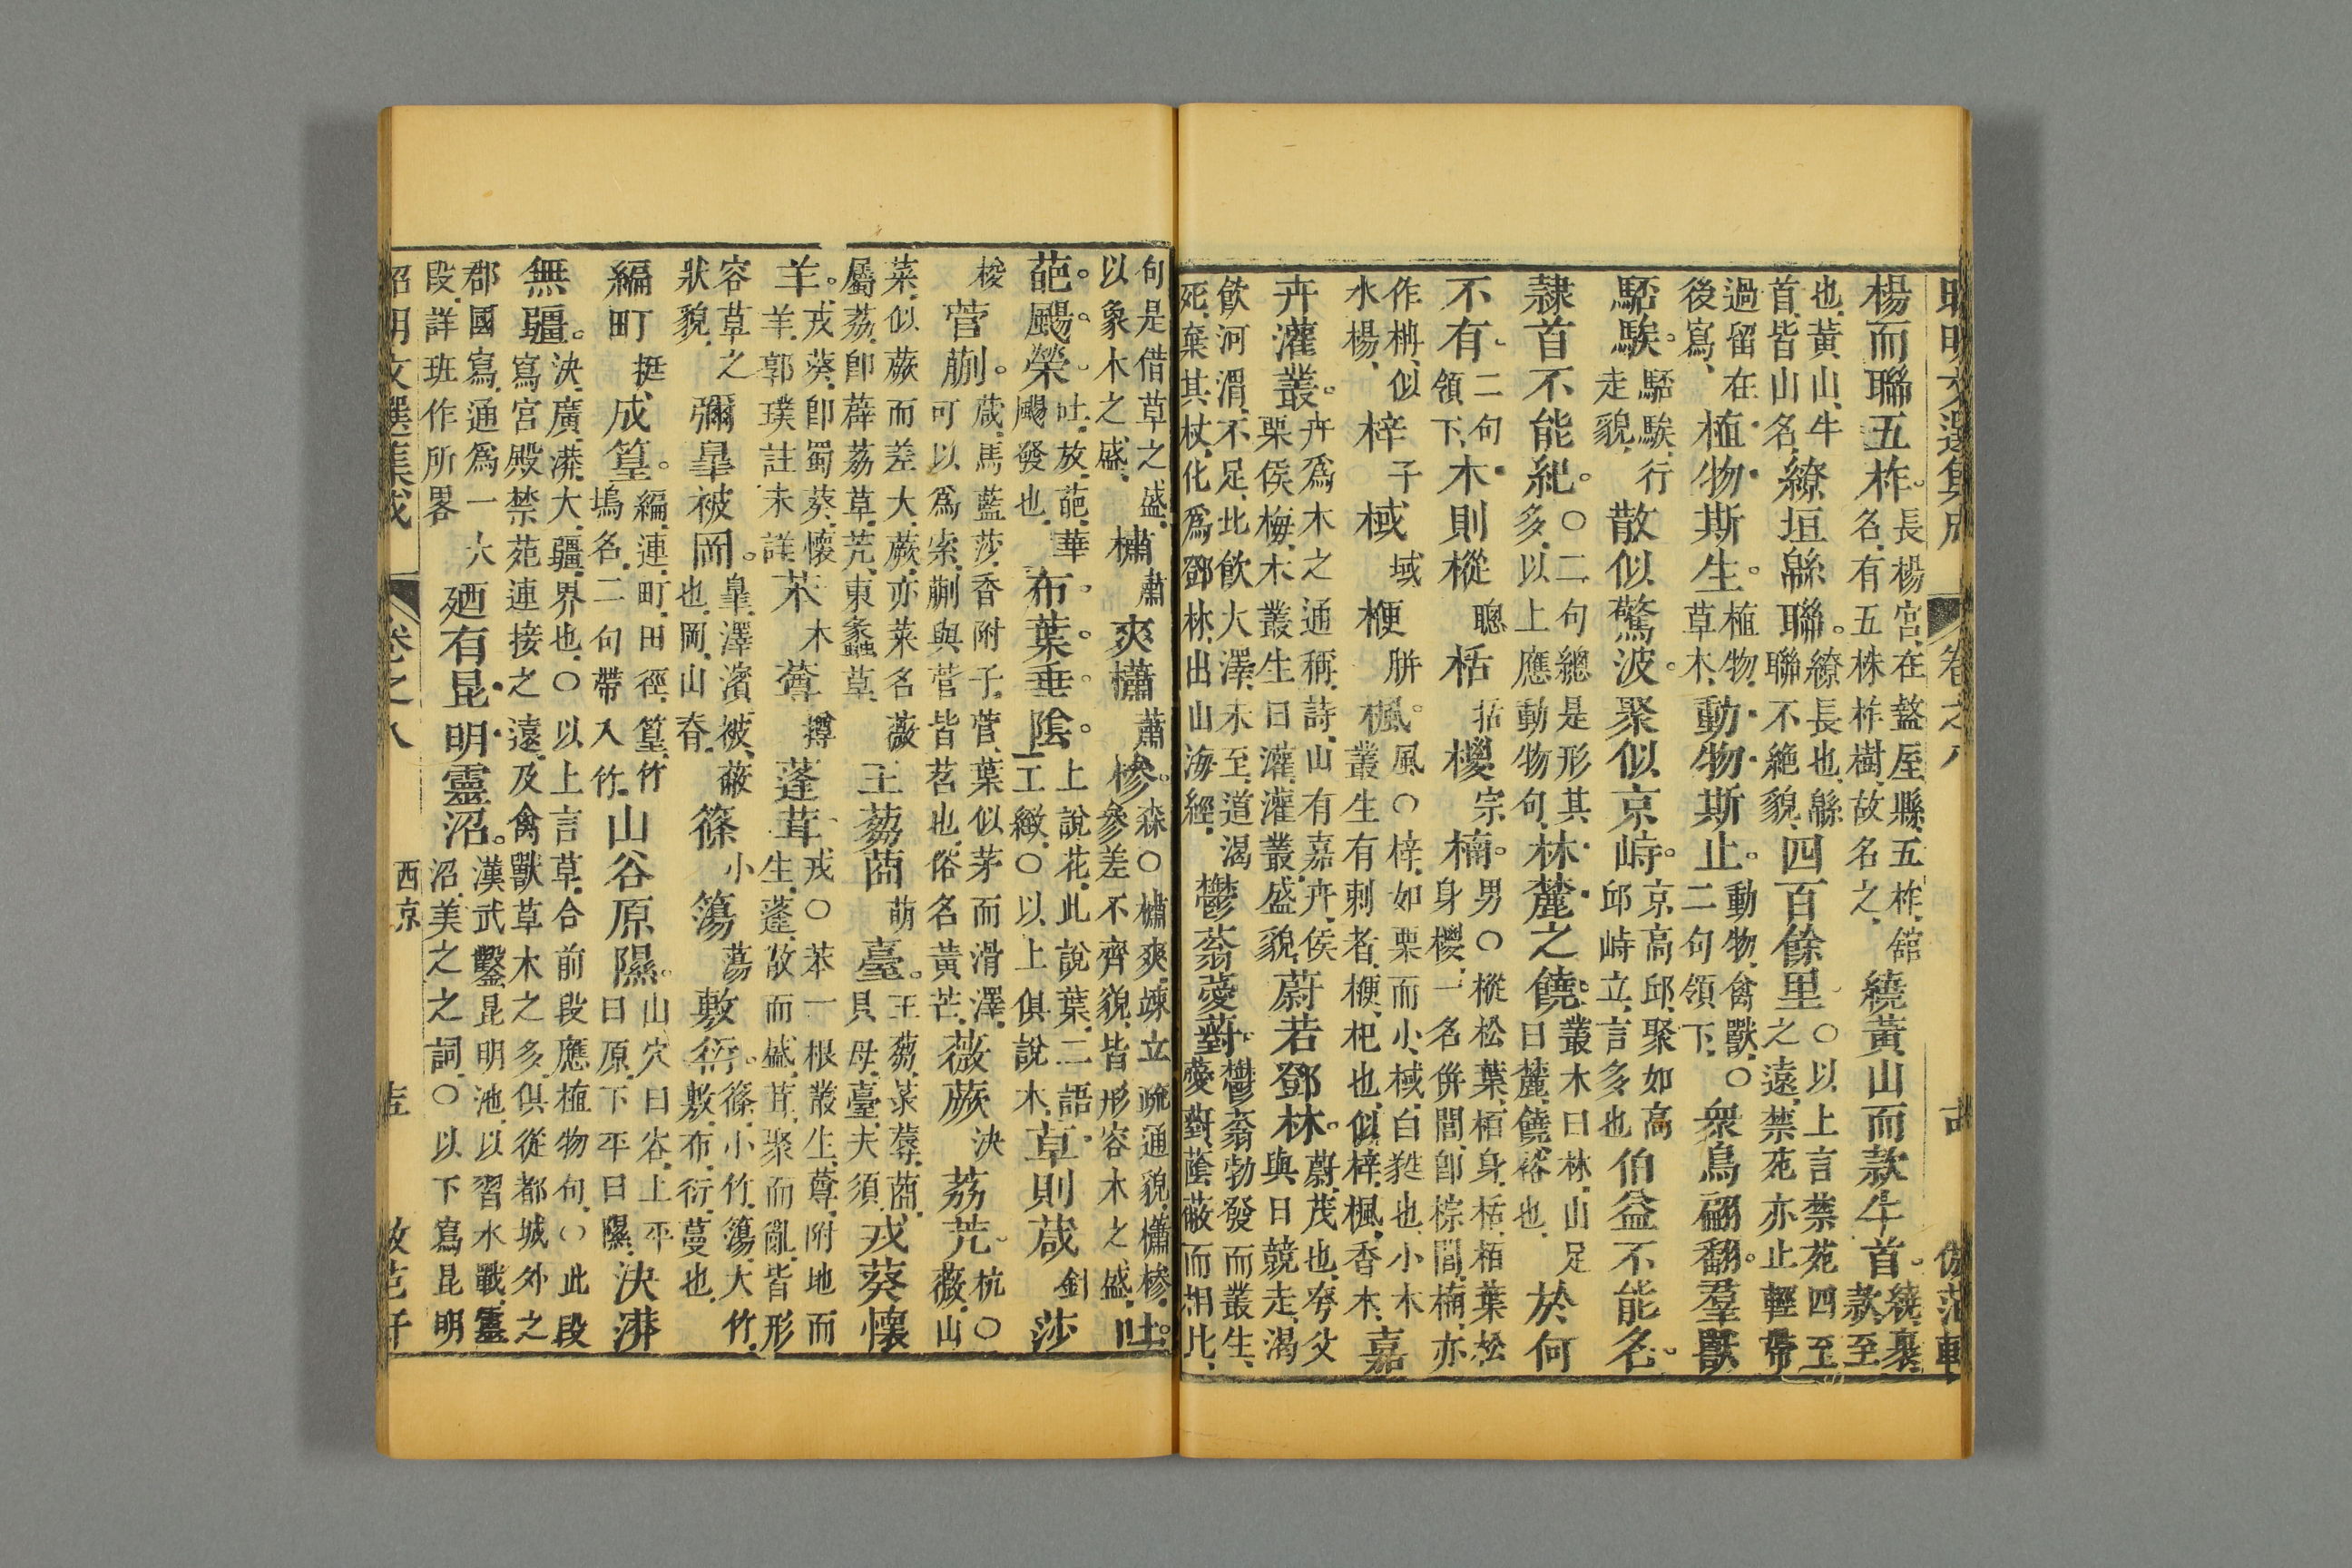 昭明文選集成 卷之八
楊而聯五柞。長楊宮、在盩厔縣、五柞、舘名、有五株柞樹、故名之、繞黃山而款牛首。繞、裹、款、至
也、黃山、牛首、皆山名、繚垣緜聯。繚、長也、緜聯、不絶貌、四百餘里、○以上言禁苑四至之遠、禁苑亦止輕帶
過、留在後寫、植物斯生。植物、草木、動物斯止。動物、禽獸、○二句領下、衆鳥翩翻。羣獸
駓騃。駓騃、行走貌、散似驚波。聚似京峙。京、高邱、聚如高邱峙立、言多也伯益不能名。
隷首不能紀。○二句總是形其多、以上應動物句、林麓之饒。叢木曰林、山足曰麓、饒、裕也、於何
不有、二句領下、木則樅聰栝括㮨宗楠。男○樅、松葉、栢身、栝、栢葉松身、㮨、一名倂閭、卽棕閭、楠、亦
作枏、似水楊、梓子棫域楩胼楓。風○梓、如栗而小、棫、白蕤也、小木叢生有刺者、楩、杞也、似梓、楓、香木、嘉
卉灌叢。卉爲木之通稱、詩、山有嘉卉、侯栗侯梅、木叢生曰灌、灌叢、盛貌、蔚若鄧林。蔚、茂也、夸父與日競走、渴
飮河渭、不足、北飮大澤、未至、道渴死、棄其杖、化爲鄧林、出山海經、鬱蓊薆薱。鬱蓊、勃發而叢生、薆薱、蔭蔽而相比、
句是借草之盛、以象木之盛、橚肅爽櫹蕭槮。森○橚爽、竦立疏通貌、櫹槮、參差不齊貌、皆形容木之盛、吐
葩。颺榮、吐、放、葩、華、颺、發也、布葉。垂陰。上說花、此說葉、二語工緻、○以上俱說木、草則葴針莎
梭菅蒯。葴、馬藍、莎、香附子、菅、葉似茅而滑澤、可以爲索、蒯、與菅皆茗也、俗名黃芒、薇蕨決荔芫、杭○薇、山
菜、似蕨而差大、蕨、亦菜名、薇屬、荔、卽薜荔草、芫、東蠡草、王芻莔萌臺。王芻、菉蓐、莔、貝母、臺、夫須、戎葵懷
羊。戎葵、卽蜀葵、懷羊、郭璞註未詳苯木䔿撙蓬茸、戎○苯、一根叢生、䔿、附地而生、蓬、散而盛、茸、聚而亂、皆形
容草之狀貌、彌臯被岡。臯、澤濱、被、蔽也、岡、山脊、篠小簜蕩敷衍。篠、小竹、簜、大竹、敷、布、衍、蔓也、
編町挺、成篁。編、連、町、田徑、篁、竹塢名、二句帶入竹、山谷原隰。山穴曰谷、上平曰原、下平曰隰、泱漭
無疆。泱、廣、漭、大、疆、界也、○以上言草、合前段應植物句、○此段寫宮殿禁苑連接之遠、及禽獸草木之多、俱從都城外之
郡國寫、通爲一大段、詳班作所畧廼有昆明靈沼。漢武鑿昆明池、以習水戰、靈沼、美之之詞、○以下寫昆明
昭明文選集成 卷之八 西京